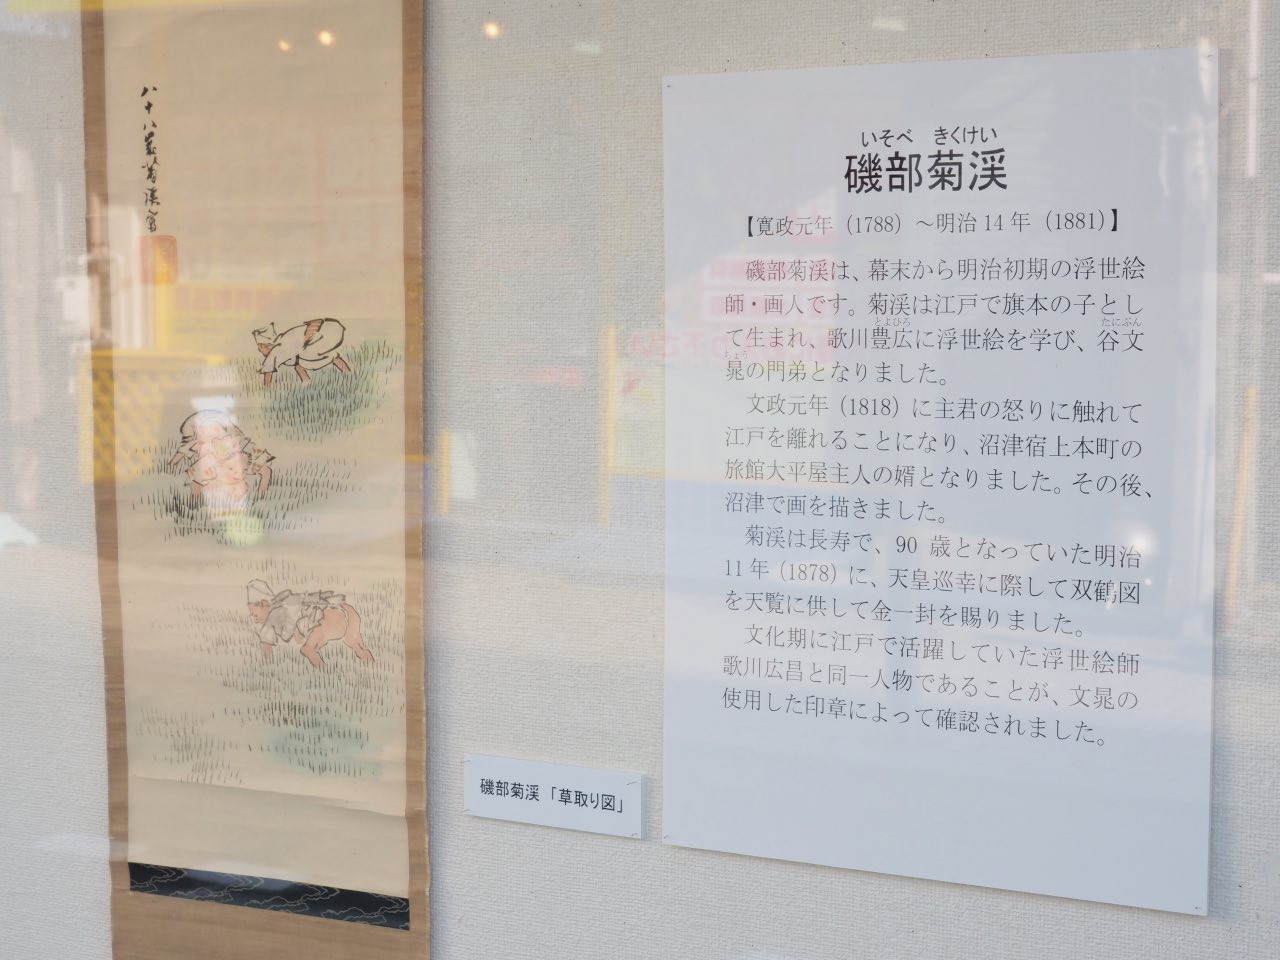 八十八叟菊渓写
いそべ きくけい
磯部菊渓
【寛政元年（1788）～明治14年（1881）】
磯部菊渓は、幕末から明治初期の浮世絵
師・画人です。菊渓は江戸で旗本の子とし
とよひろ たにぶん
て生まれ、歌川豊広に浮世絵を学び、谷文
ちょう
晁の門弟となりました。
文政元年（1818）に主君の怒りに触れて
江戸を離れることになり、沼津宿上本町の
旅館大平屋主人の婿となりました。その後、
沼津で画を描きました。
菊渓は長寿で、90 歳となっていた明治
11年（1878）に、天皇巡幸に際して双鶴図
を天覧に供して金一封を賜りました。
文化期に江戸で活躍していた浮世絵師
歌川広昌と同一人物であることが、文晁の
使用した印章によって確認されました。
磯部菊渓「草取り図」